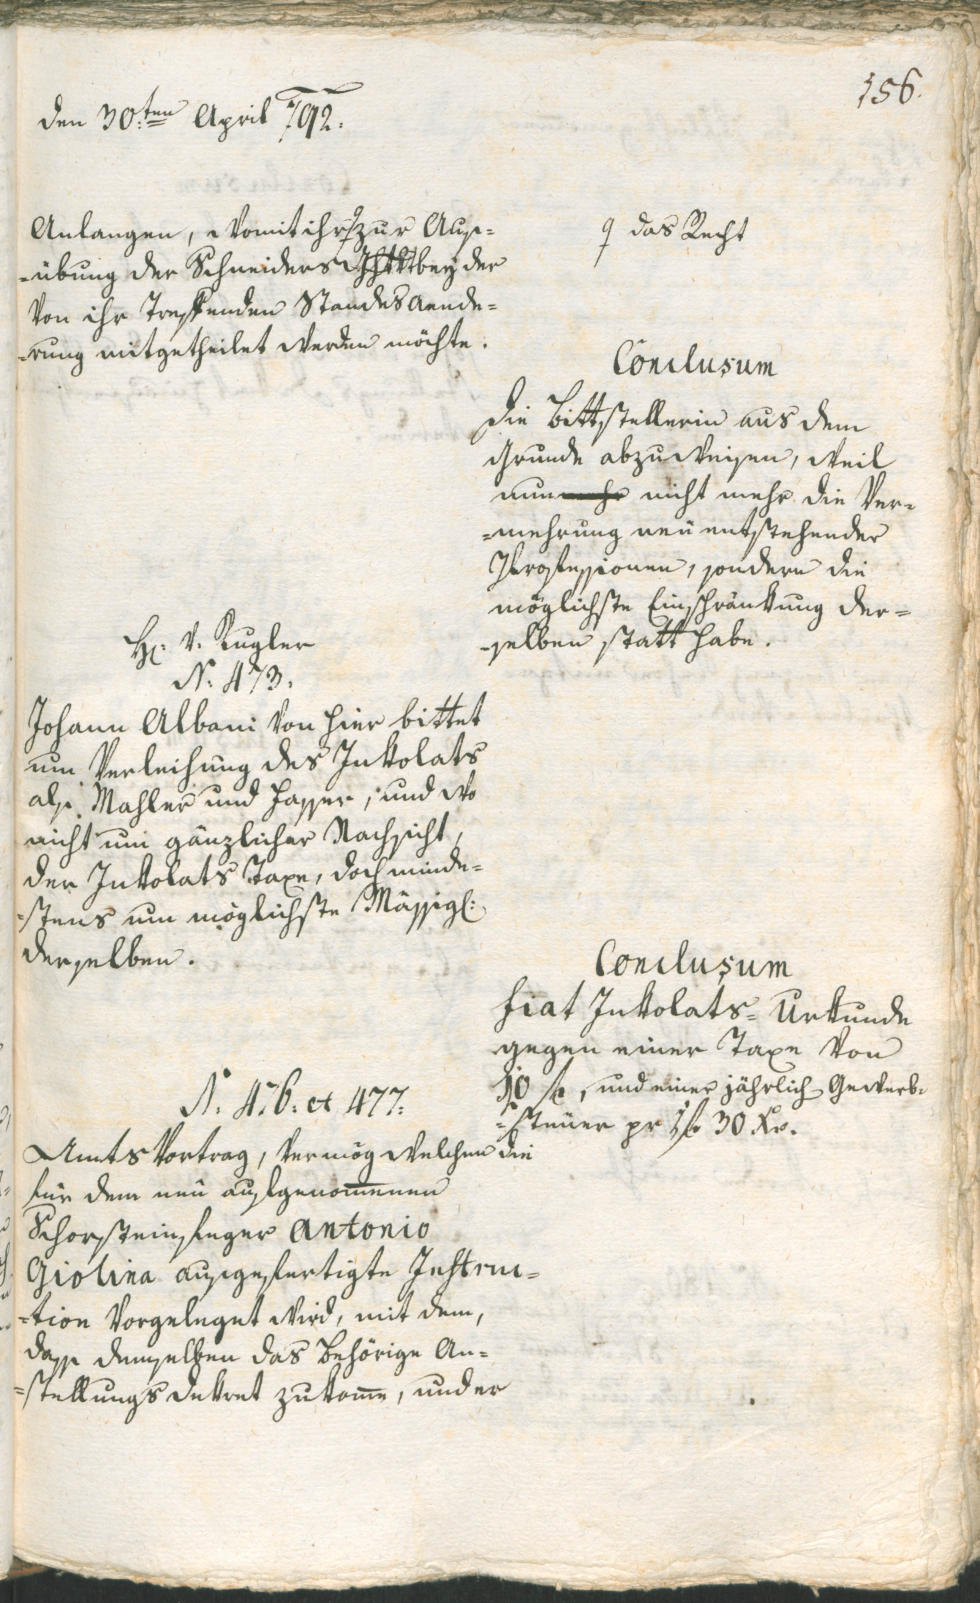 156.
den 30.ten April 792.
Anlangen, womit ihr zur Aus=
=übung der Schneiders bey der
von ihr treffenden Standes Aende=
=rung mitgetheilet werden möchte.
das Recht
Conclusum
die Bittstellerin aus dem
Grunde abzuweisen, weil
nunmehr nicht mehr die Ver=
=mehrung neu entstehender
Professionen, sondern die
möglichste Einschränkung der=
=selben statt habe.
H: v. Kugler
N: 473.
Johann Albani von hier bittet
um Verleihung des Inkolats
als Mahler und Fasser, und wo
nicht um gänzlicher Nachsicht,
der Inkolats Taxe, doch minde=
=stens um möglichste Mässigl:
derselben.
Conclusum
fiat Inkolats=Urkunde
gegen einer Taxe von
10 f, und einer jährlich Gewerb=
=steüer pr 1 f 30 Xr.
N. 476. et 477.
Amts Vortrag, vermög welchem die
für dem neu aufgenommenen
Schorsteinfeger Antonio
Giolina ausgefertigte Instruc=
=tion vorgeleget wird, mit dem,
dass demselben das behörige An=
=stellungs Dekret zukomme, und er